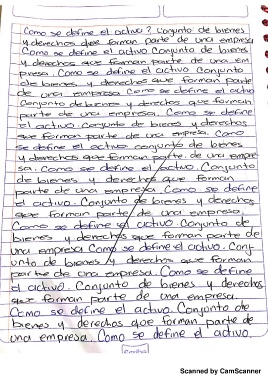 Como se define el activo? Conjunto de bienes
y derechos que forman parte de una empresa
Como se define el activo Conjunto de bienes
y derechos que forman parte de una em
presa. Como se define el activo Conjunto
de bienes y derechos que forman parte
de una empresa Como se define el activo
Conjunto de bienes y derechos que forman
parte de una empresa. Como se define
el activo. Conjunto de bienes y derechos
que forman parte de una empresa. Como
se define el activo conjunto de bienes
y derechos que forman parte. de una empre
sa. Como se define el activo. Conjunto
de bienes y derechos que forman
parte de una empresa. Como se define
el activo. Conjunto de bienes y derechos
que forman parte de una empresa.
Como se define el activo Conjunto de
bienes y derechos que forman parte de
una empresa Como se define el activo. Conj
unto de bienes y derechos que forman
parte de una empresa. Como se define
el activo. Conjunto de bienes y derechos
que forman parte de una empresa.
Como se define el activo. Conjunto de
bienes y derechos que forman parte de
una empresa. Como se define el activo.
Scanned by CamScanner